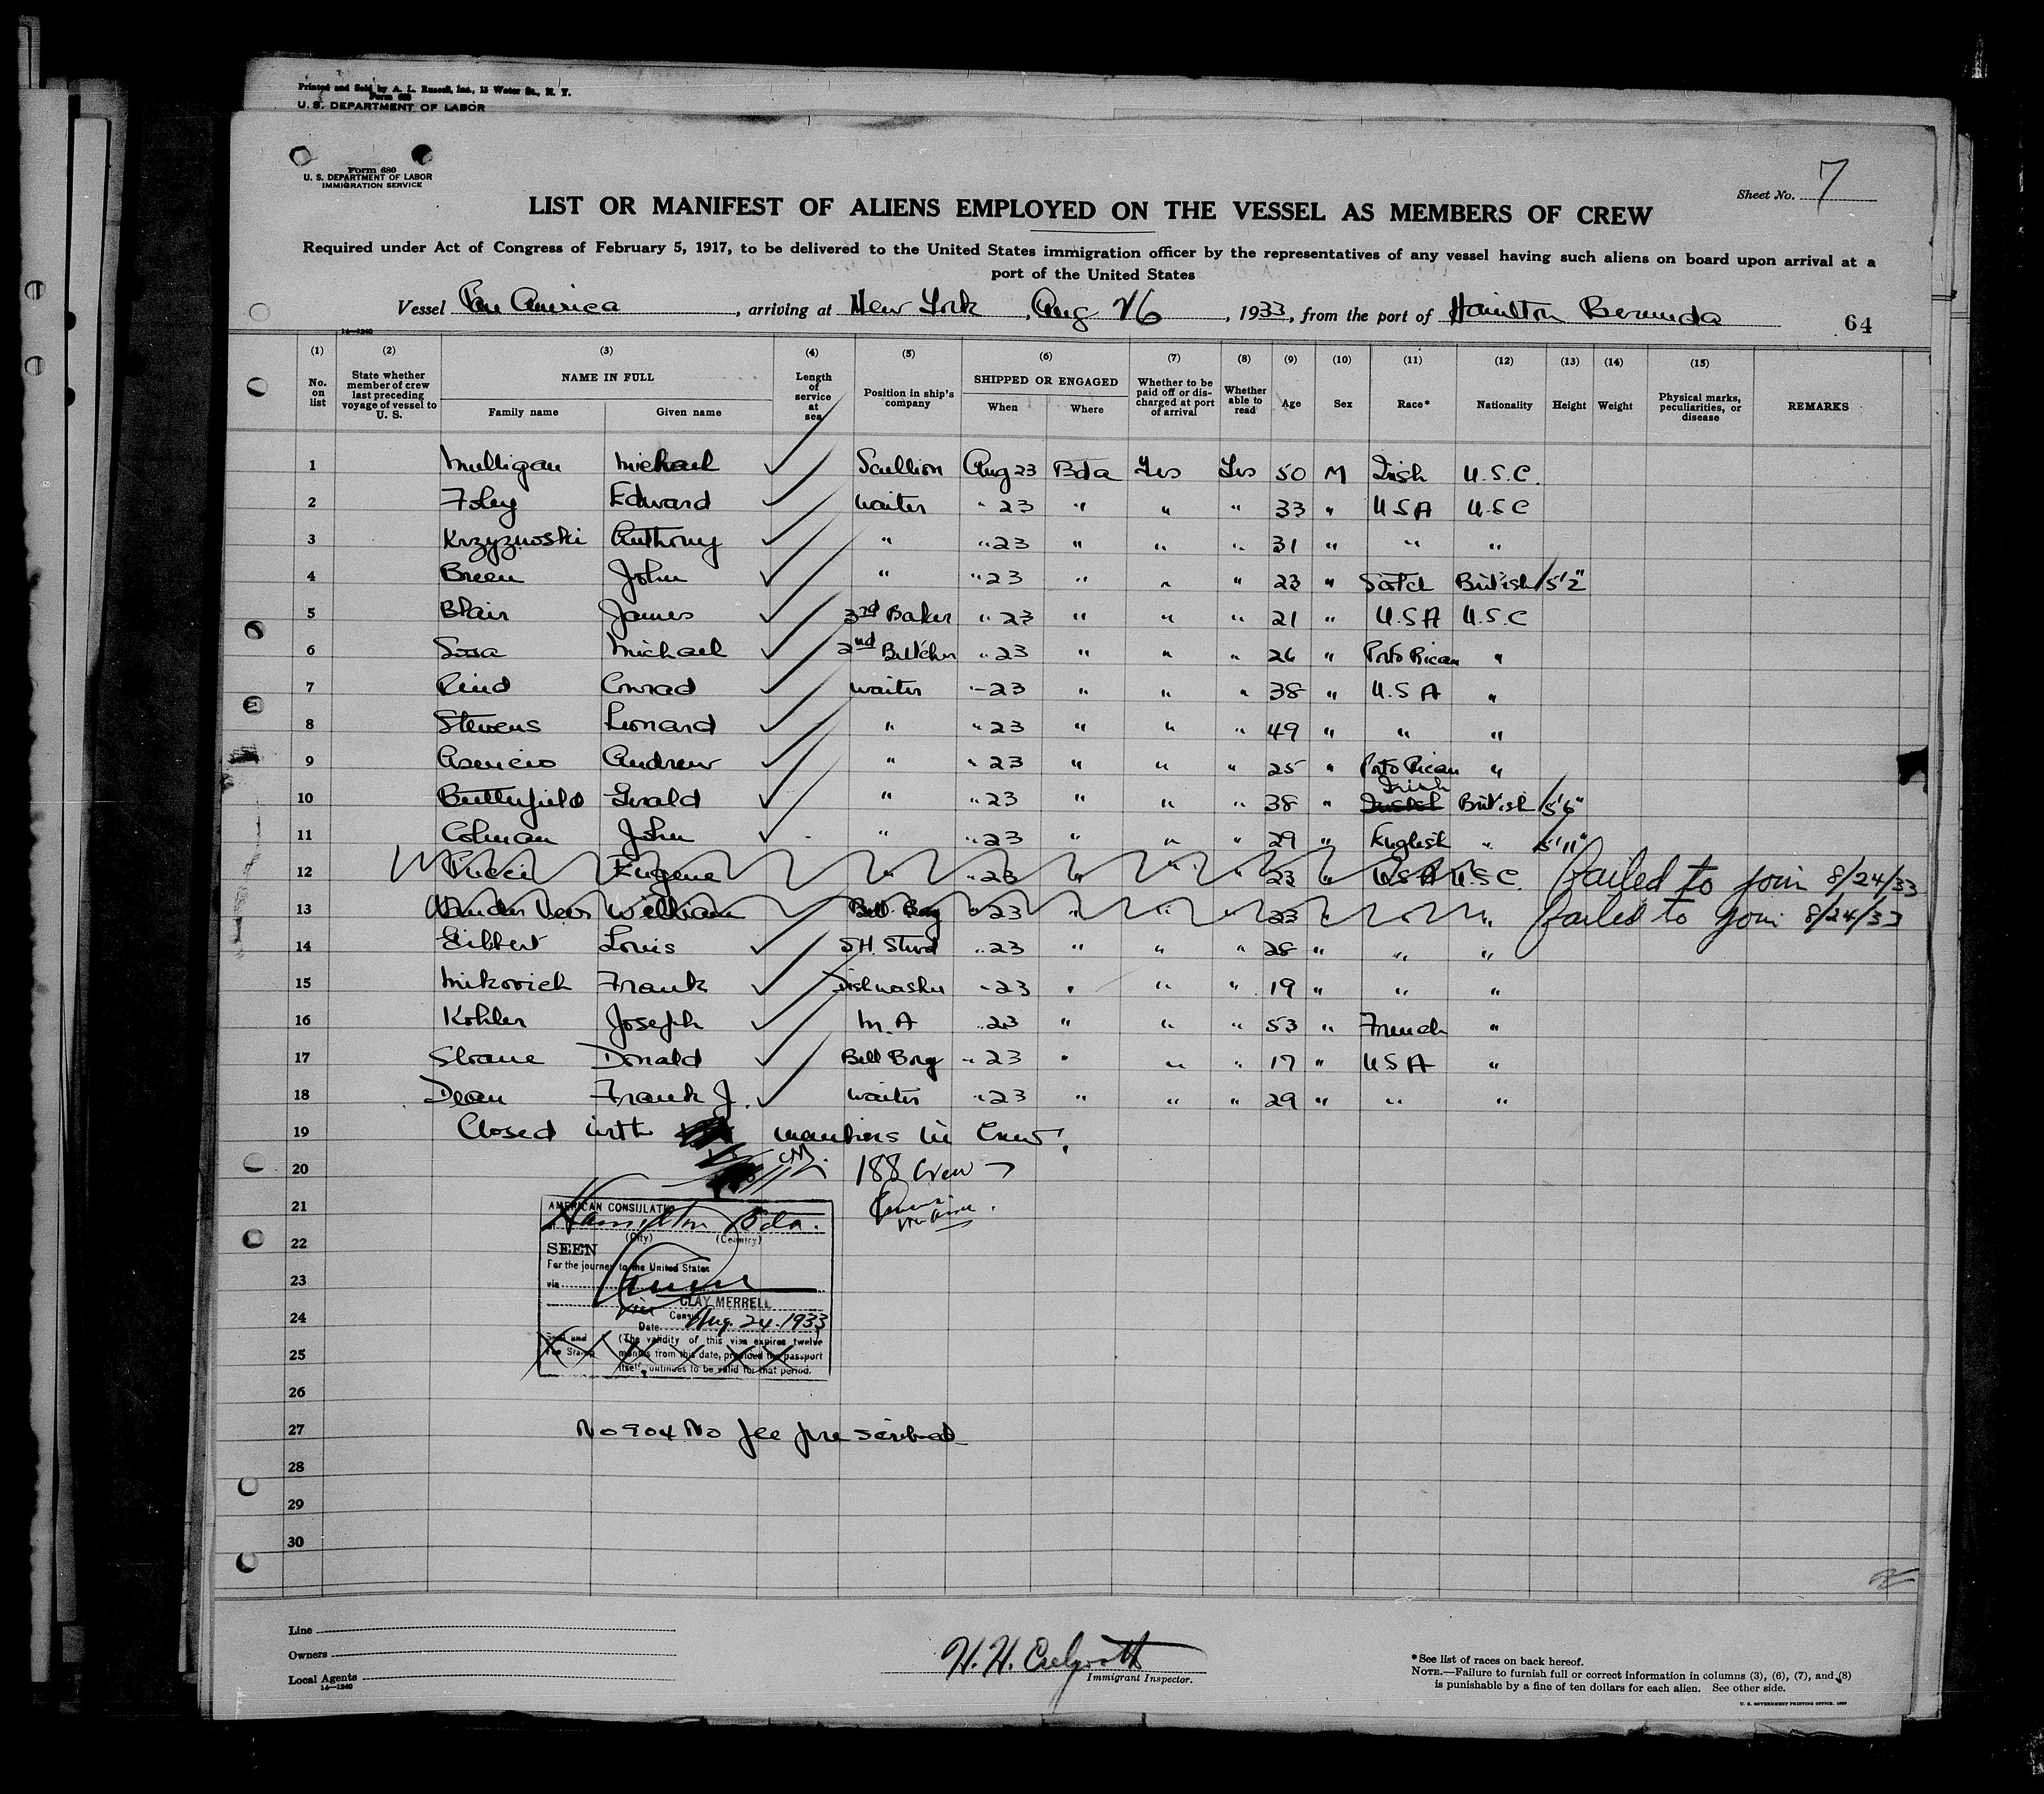 Printed and Sold by A. L. Russell, Inc., 15 Water St., N. Y.
Form 680
U. S. DEPARTMENT OF LABOR
Form 680
U. S. DEPARTMENT OF LABOR
IMMIGRATION SERVICE
Sheet No. 7
LIST OR MANIFEST OF ALIENS EMPLOYED ON THE VESSEL AS MEMBERS OF CREW
Required under Act of Congress of February 5, 1917, to be delivered to the United States immigration officer by the representatives of any vessel having such aliens on board upon arrival at a
port of the United States
Vessel Pan America, arriving at New York, Aug 26, 1933, from the port of Hamilton Bermuda
64
14-1240
(1) (2) (3) (4) (5) (6) (7) (8) (9) (10) (11) (12) (13) (14) (15)
No. on list State whether member of crew last preceding voyage of vessel to U. S. NAME IN FULL Family name Given name Length of service at sea Position in ship's company SHIPPED OR ENGAGED When Where Whether to be paid off or discharged at port of arrival Whether able to read Age Sex Race* Nationality Height Weight Physical marks, peculiarities, or disease REMARKS
1 Mulligan Michael Scullion Aug 23 Bda Yes Yes 50 M Irish U.S.C.
2 Foley Edward Waiter " 23 " " " 33 " USA U.S.C
3 Krzyznoski Anthony " " 23 " " " 31 " " "
4 Breen John " " 23 " " " 23 " Scotch British 5'2"
5 Blair James 3rd Baker " 23 " " " 21 " U.S.A U.S.C
6 Sosa Michael 2nd Butcher " 23 " " " 26 " Porto Rican "
7 Conrad Waiter " 23 " " " 38 " U.S.A "
8 Stevens Leonard " " 23 " " " 49 " " "
9 Asencio Andrew " " 23 " " " 25 " Porto Rican "
10 Butterfield Gerald " " 23 " " " 38 " Irish British 5'6"
11 Colman John " " 23 " " " 29 " English " 5'11"
12 Eugene " " 23 " " " 23 " USA U.S.C. failed to join 8/24/33
13 William Bell Boy " 23 " " " 23 " " " failed to join 8/24/33
14 Louis S.H. Stwd " 23 " " " 28 " " "
15 Mikovich Frank Dishwasher " 23 " " " 19 " " "
16 Kohler Joseph M.A " 23 " " " 53 " French "
17 Sloane Donald Bell Boy " 23 " " " 17 " USA "
18 Dean Frank J. Waiter " 23 " " " 29 " " "
19 Closed with members in Crew.
20 188 Crew
21
AMERICAN CONSULATE
Hamilton Bda.
(City) (Country)
22
SEEN
For the journey to the United States
23
via
CLAY MERRELL
24
Consul
Date Aug. 24. 1933
Seal and Fee Stamp
(The validity of this visa expires twelve
25
months from this date, provided the passport
itself continues to be valid for that period.
26
27 No 904 No fee prescribed
28
29
30
Line
Owners
Local Agents
14-1240
H. H.
Immigrant Inspector.
*See list of races on back hereof.
NOTE.—Failure to furnish full or correct information in columns (3), (6), (7), and (8)
is punishable by a fine of ten dollars for each alien. See other side.
U. S. GOVERNMENT PRINTING OFFICE